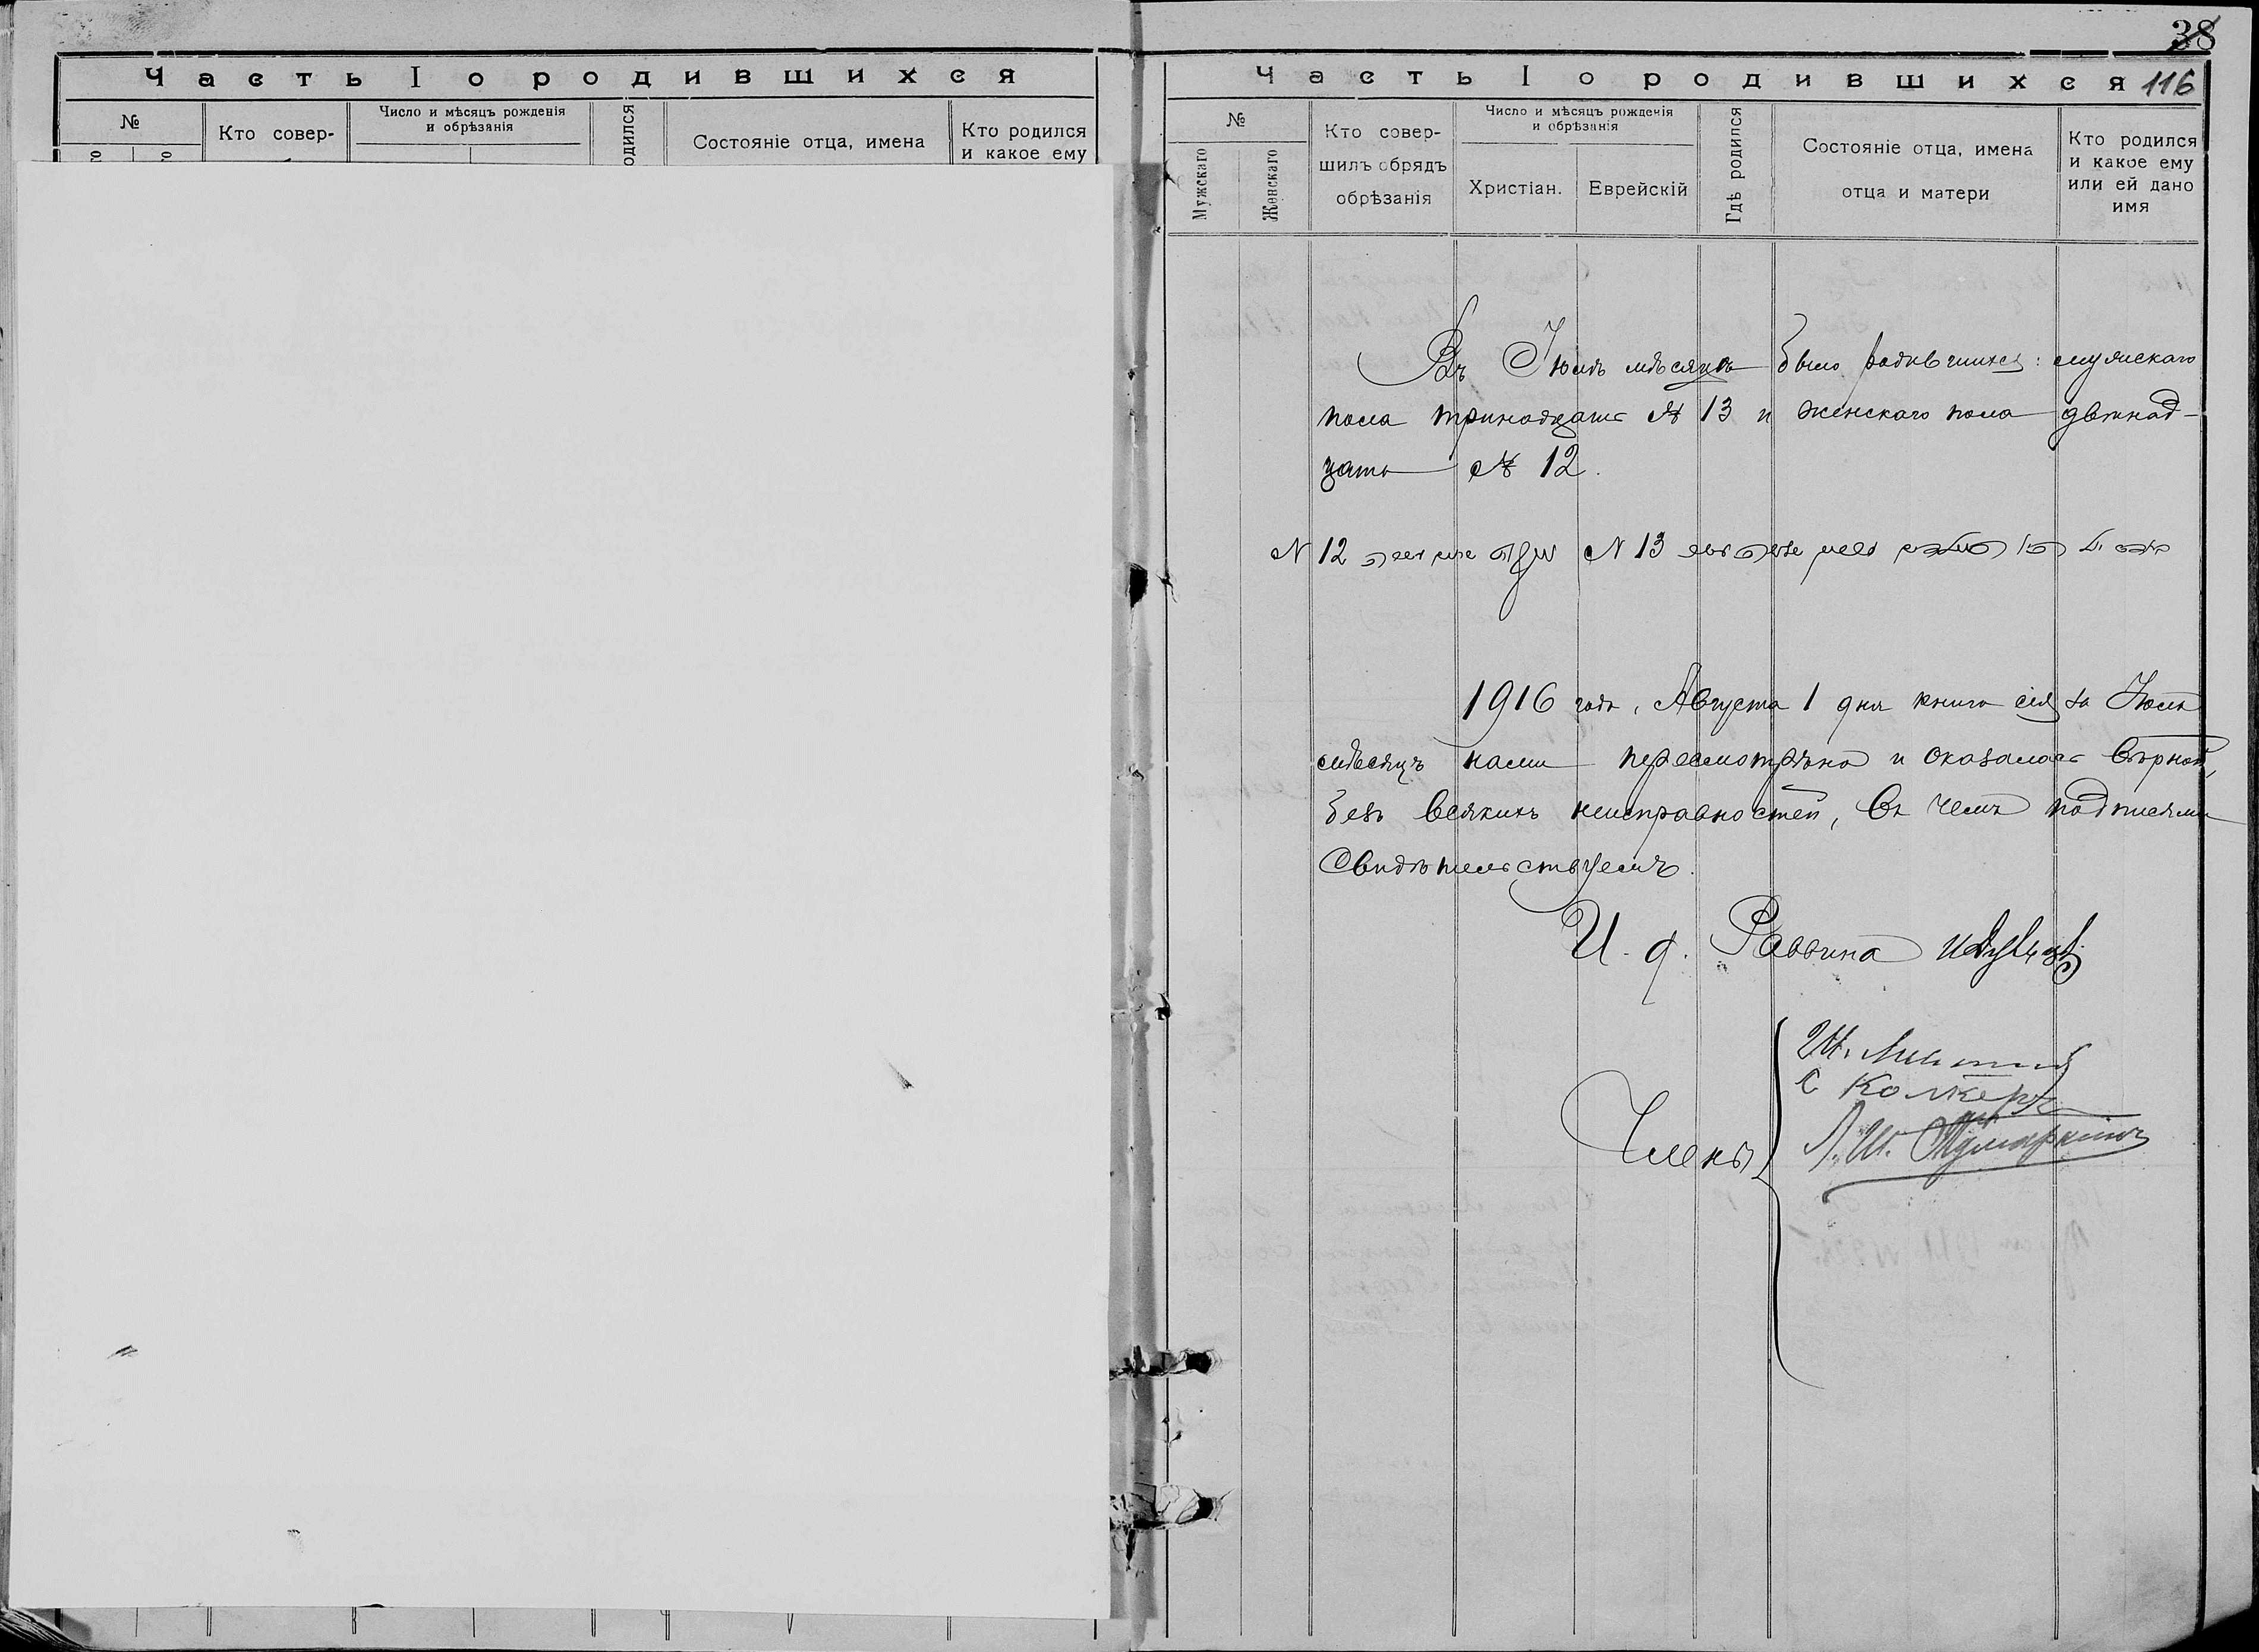 Часть I о родившихся
№
Кто совер-
Число и мѣсяцъ рожденія
и обрѣзанія
одился
Состояніе отца, имена
Кто родился
и какое ему
38
Часть I о родившихся 116
№
Мужскаго
Женскаго
Кто совер-
шилъ обрядъ
обрѣзанія
Число и мѣсяцъ рожденія
и обрѣзанія
Христіан.
Еврейскій
Гдѣ родился
Состояніе отца, имена
отца и матери
Кто родился
и какое ему
или ей дано
имя
Въ Іюлѣ мѣсяцѣ было родившихся: мужскаго
пола тринадцать № 13 и женскаго пола двѣнад-
цать № 12.
N 12 N 13
1916 года, Августа 1 дня книга сія за Іюль
мѣсяцъ нами пересмотрѣна и оказалась вѣрной,
безъ всякихъ неисправностей, въ чемъ подписями
свидѣтельствуемъ.
И. д. Раввина
Члены
С Колкеръ
Л. Ш.